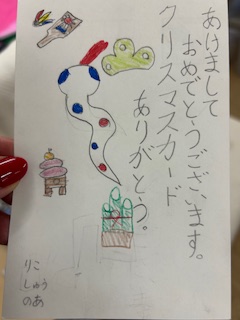 あけまして
おめでとうございます。
クリスマスカード
ありがとう。
りこ
しゅう
のあ